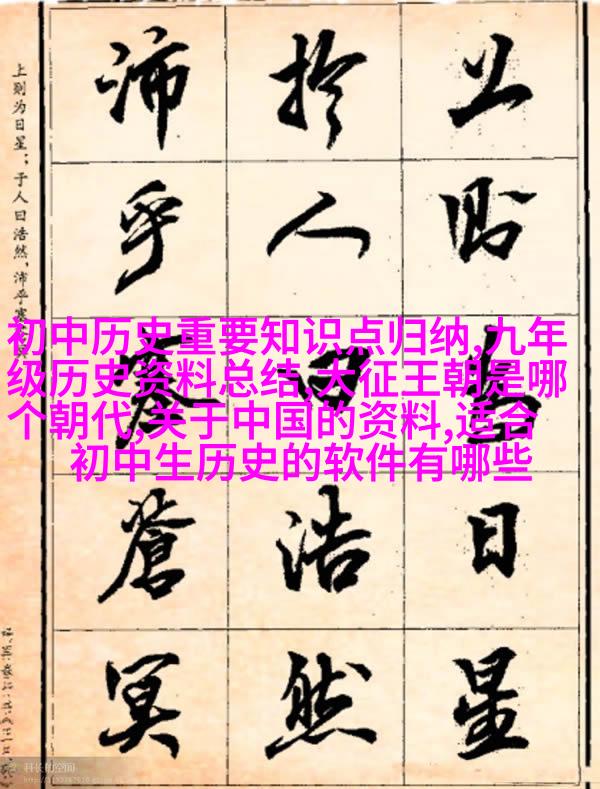 上则為日星
扵人曰浩然
沛乎塞蒼冥
上则为日星;于人曰浩然,沛乎塞
初中历史重要知识点归纳,九年
级历史资料总结,大征王朝是哪
个朝代,关于中国的资料,适合
初中生历史的软件有哪些
科长的空间